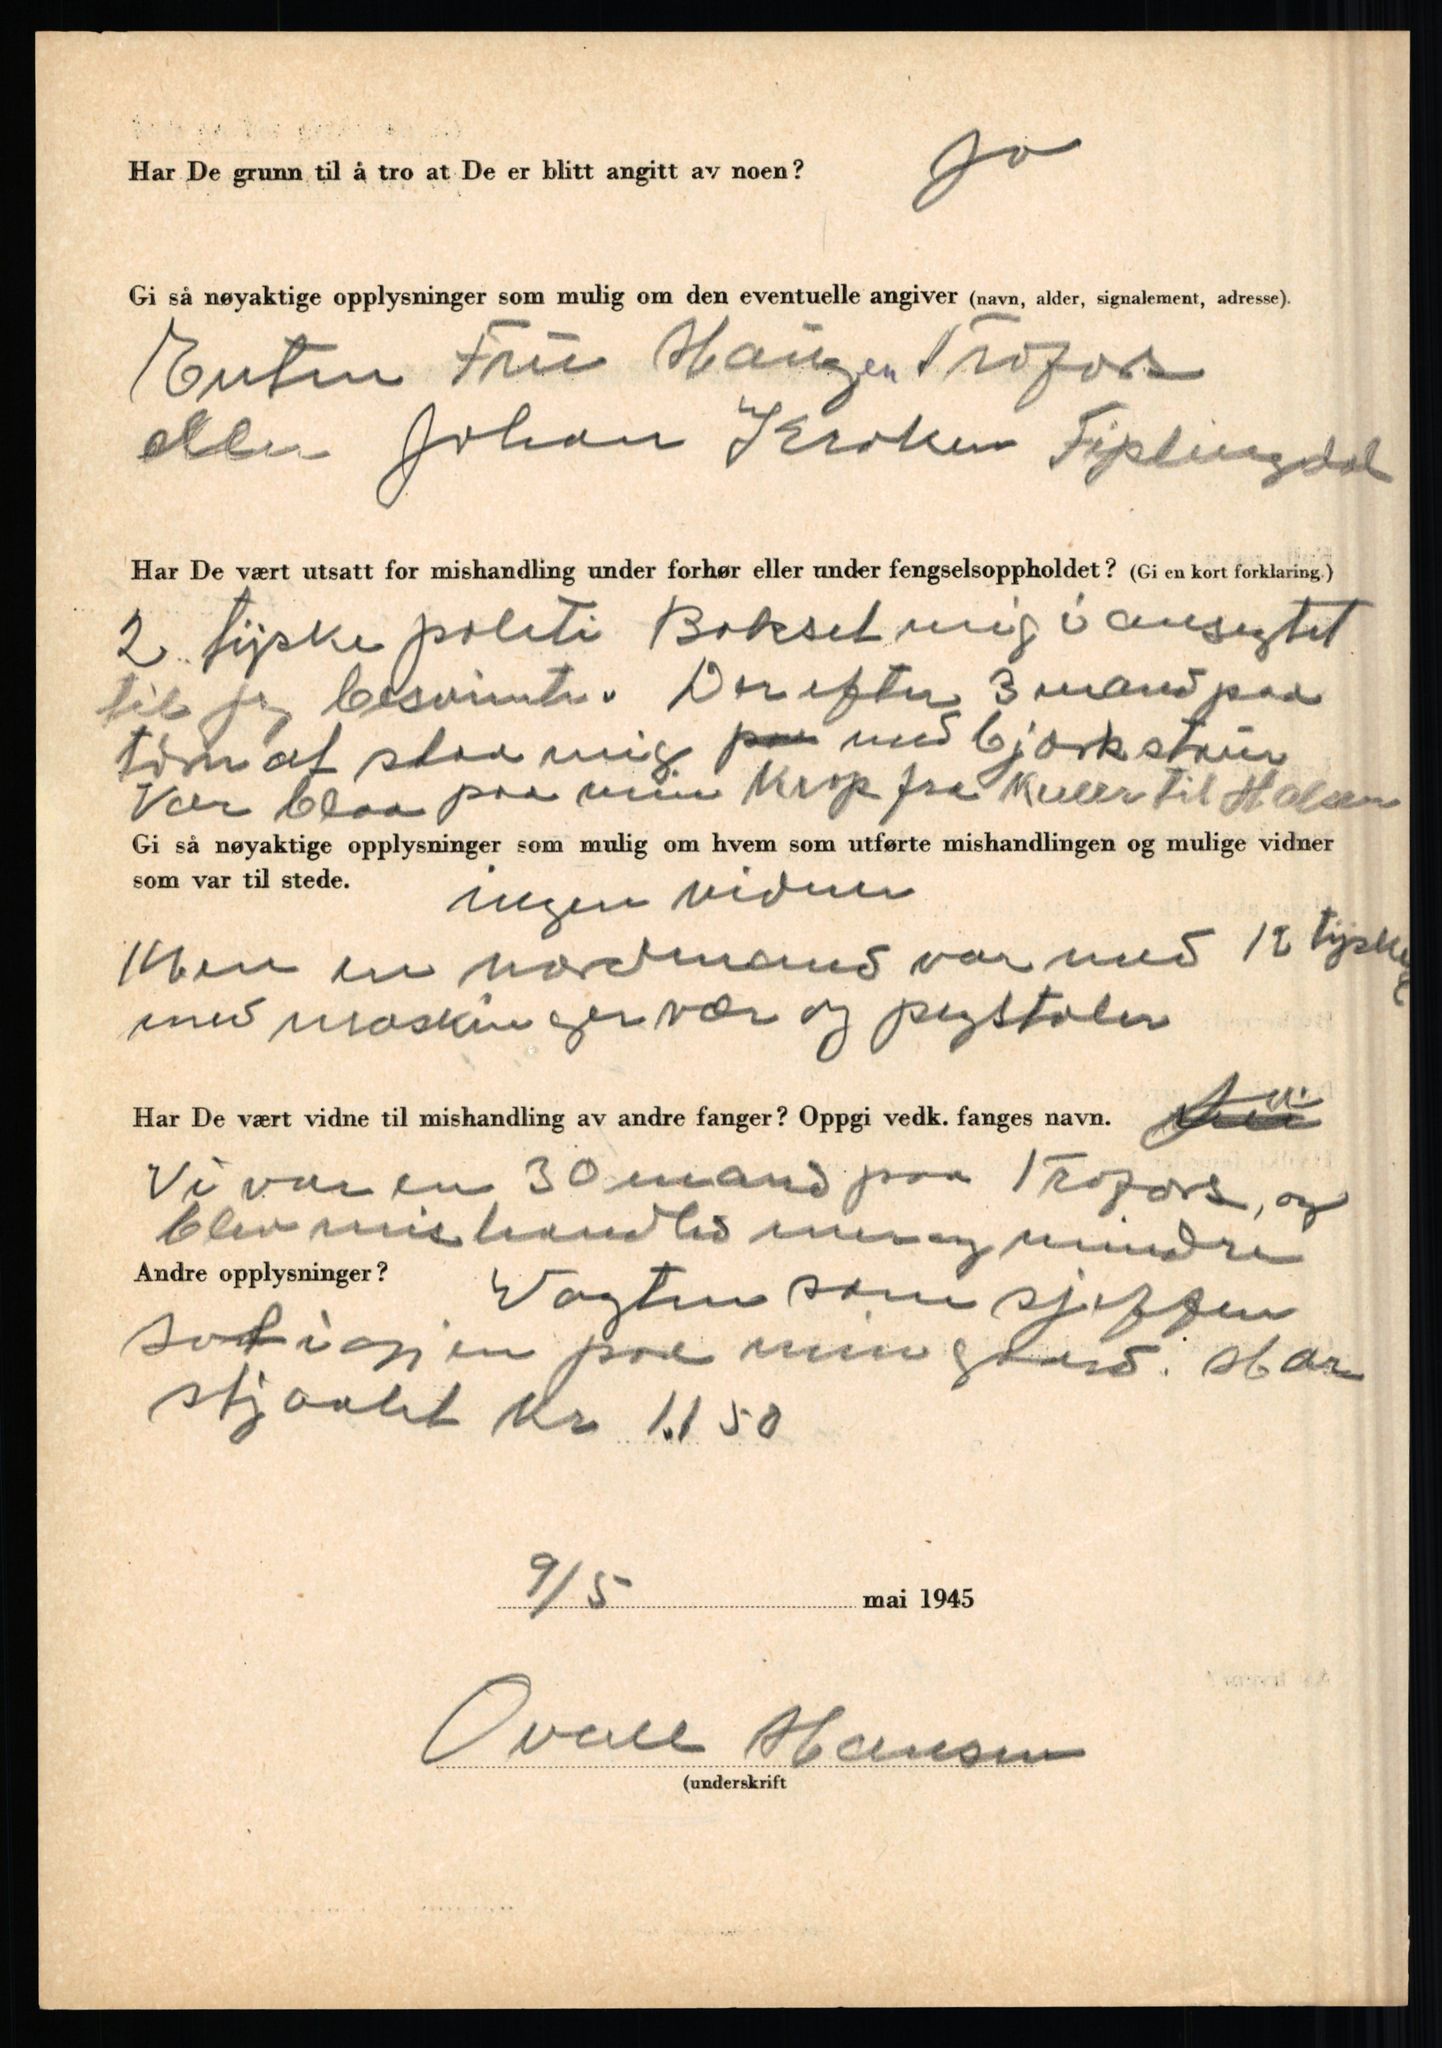 Har De grunn til å tro at De er blitt angitt av noen? Jo
Gi så nøyaktige opplysninger som mulig om den eventuelle angiver (navn, alder, signalement, adresse).
Enten Frue Haugen Trofors
eller Johan Kroken Fiplingdal
Har De vært utsatt for mishandling under forhør eller under fengselsoppholdet? (Gi en kort forklaring.)
2 tyske politi Bokset mig i ansegtet
til jeg besvimte. Der efter 3 mand paa
tørn at slaa mig paa med bjørk størur
Var blaa paa min Krop fra Kneer til Halsen
Gi så nøyaktige opplysninger som mulig om hvem som utførte mishandlingen og mulige vidner
som var til stede.
ingen vidner
Men en nordmand var med 12 tyskere
med maskin gervær og pystoler
Har De vært vidne til mishandling av andre fanger? Oppgi vedk. fanges navn.
Vi var en 30 mand paa Trofors, og
blev mishandled mer og mindre
Andre opplysninger? Vagten som sjeffen
sat igjen paa min gaard. Har
stjaalet Kr 1.150
9/5 mai 1945
Ovall Hansen
(underskrift